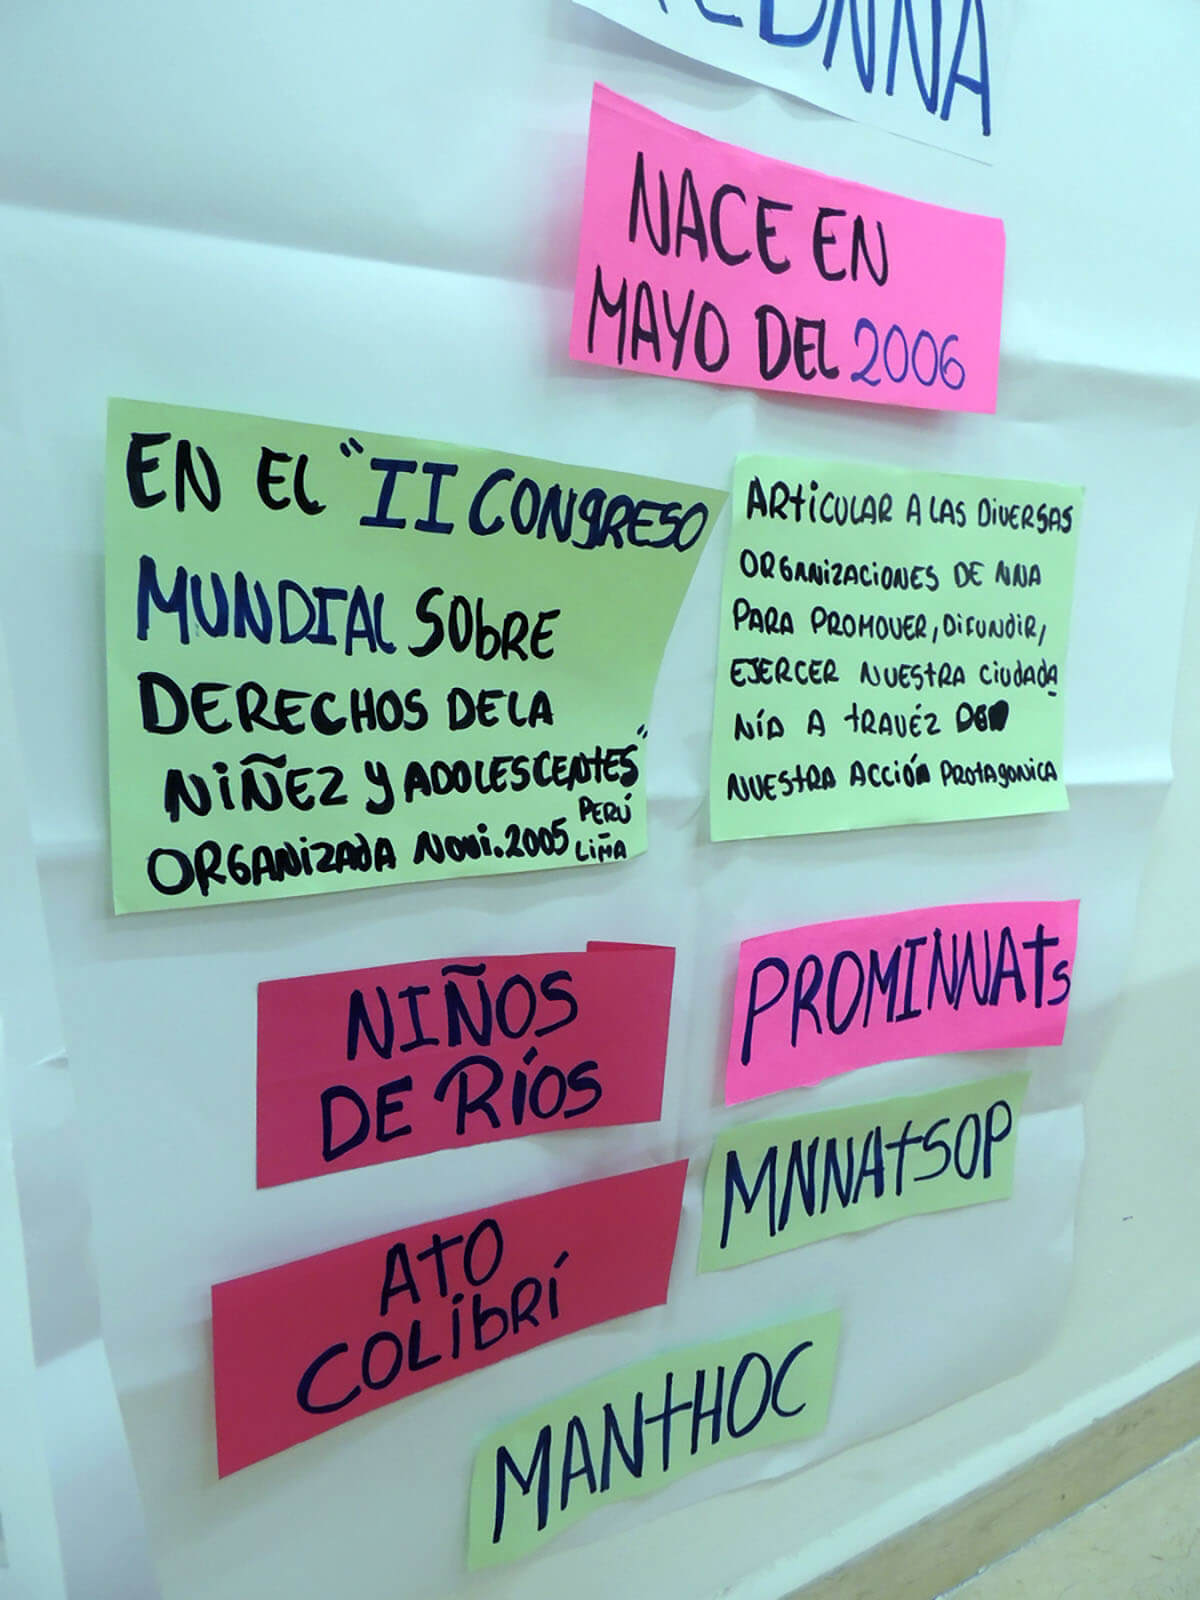 NACE EN
MAYO DEL 2006
EN EL "II CONGRESO
MUNDIAL SOBRE
DERECHOS DE LA
NIÑEZ Y ADOLESCENTES"
ORGANIZADA NOVI.2005 PERÚ
LIMA
ARTICULAR A LAS DIVERSAS
ORGANIZACIONES DE NNA
PARA PROMOVER, DIFUNDIR,
EJERCER NUESTRA CIUDADA
NÍA A TRAVÉZ DE
NUESTRA ACCIÓN PROTAGONICA
NIÑOS
DE RÍOS
PROMINNATs
MNNATSOP
ATO
COLIBRÍ
MANTHOC